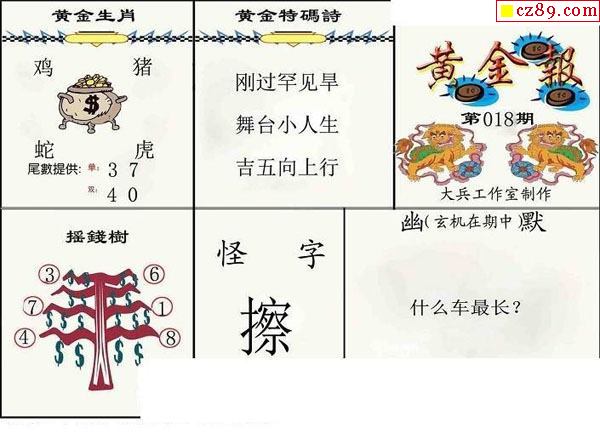 cz89.com
黄金生肖
鸡 猪
$
蛇 虎
尾數提供: 单: 3 7
双: 4 0
黄金特碼詩
刚过罕见旱
舞台小人生
吉五向上行
黄金報
第018期
大兵工作室制作
摇錢樹
③ ⑥
⑦ ①
④ ⑧
$ $ $ $ $ $ $ $
怪 字
擦
幽(玄机在期中)默
什么车最长?